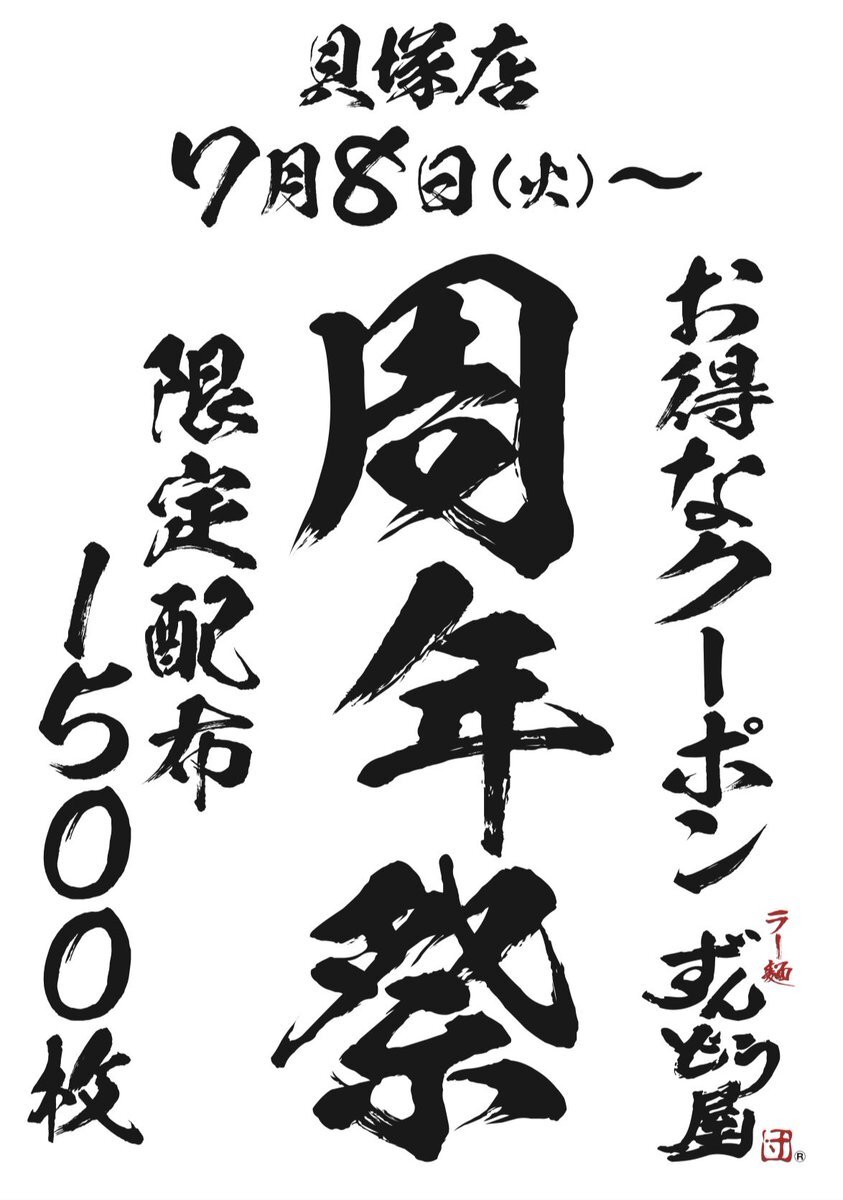 貝塚店
7月8日(火)~
お得なクーポン
周年祭
限定配布
1500枚
ラー麺
ずんどう屋
団®